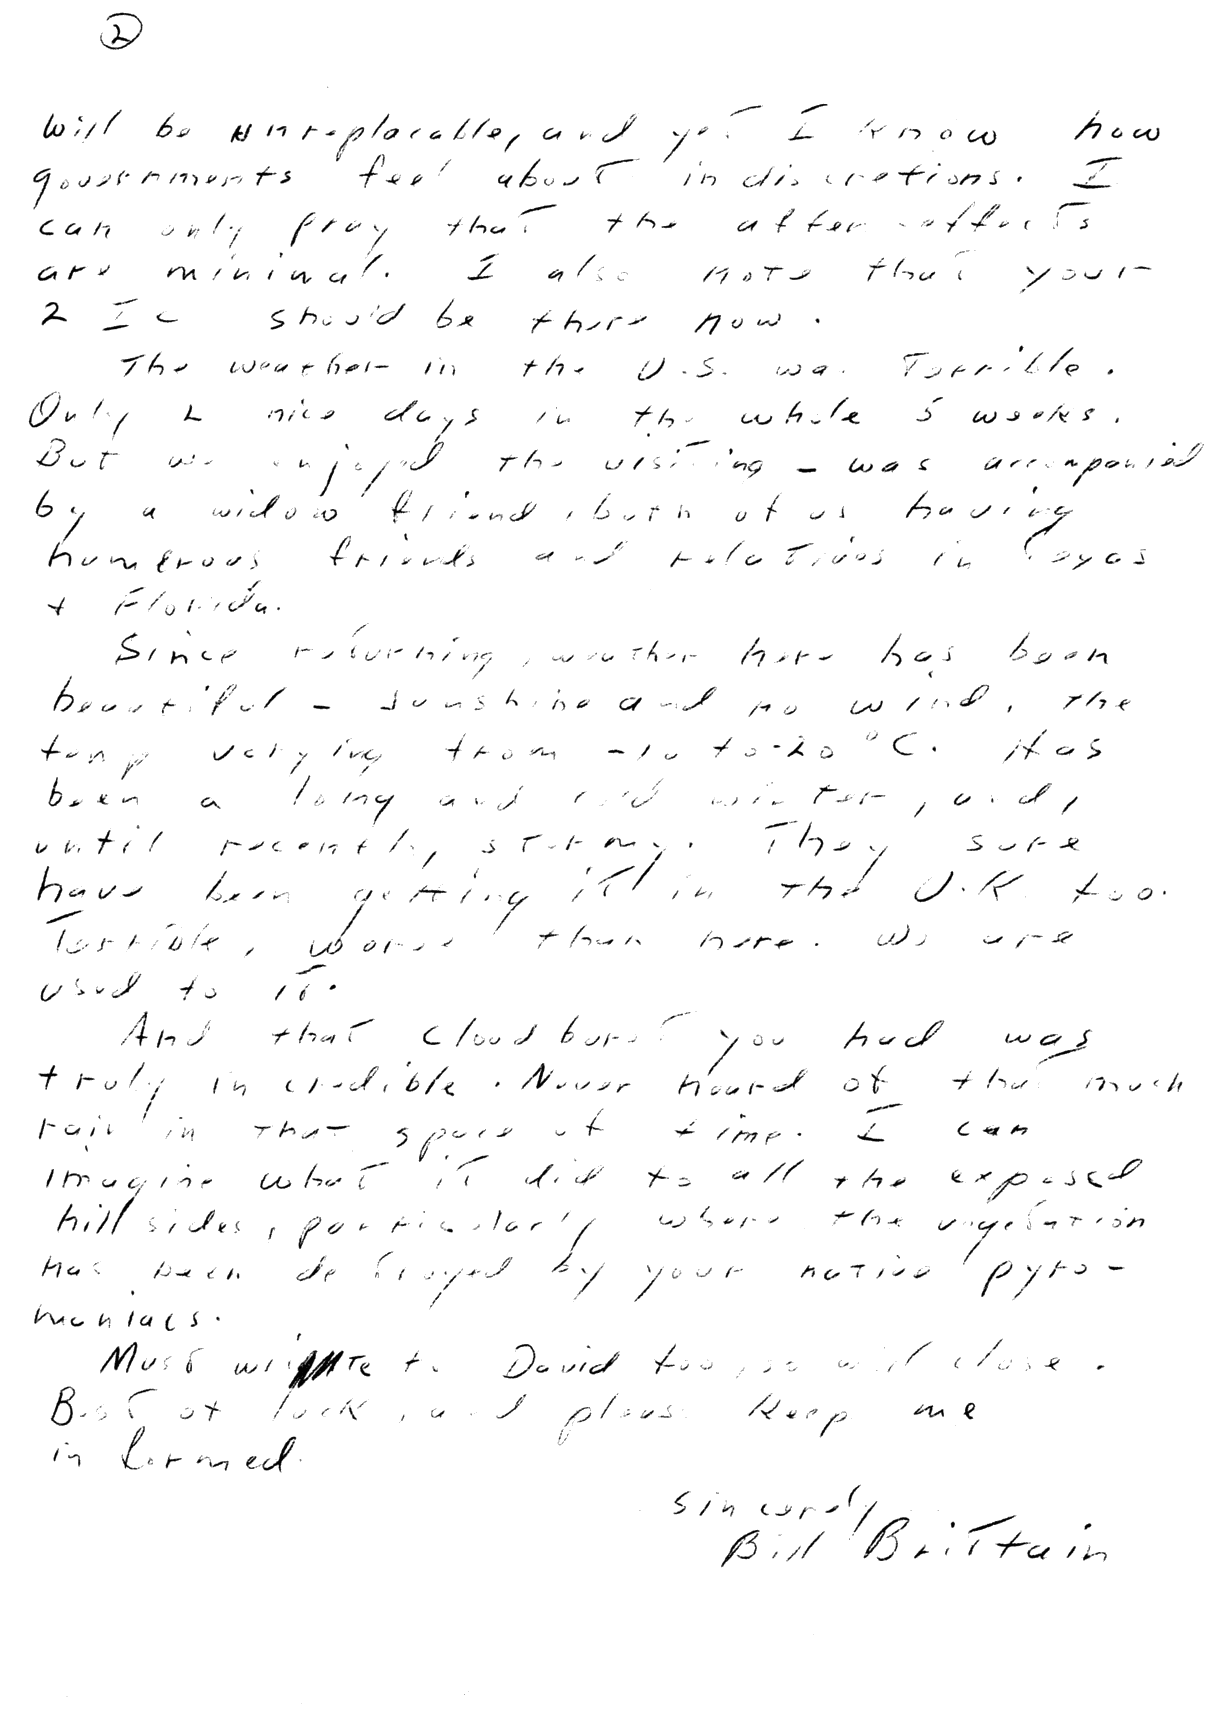 2
will be unreplacable, and yet I know how
governments feel about indiscretions. I
can only pray that the after-effects
are minimal. I also note that your
2 I C should be there now.
The weather in the U.S. was Terrible.
Only 2 nice days in the whole 5 weeks.
But we enjoyed the visiting - was accompanied
by a widow friend, both of us having
numerous friends and relatives in Texas
+ Florida.
Since returning, weather here has been
beautiful - sunshine and no wind, the
temp varying from -10 to -20 °C. Has
been a long and cold winter, and,
until recently, stormy. They sure
have been getting it in the U.K. too.
Terrible, worse than here. We are
used to it.
And that cloudburst you had was
truly incredible. Never heard of that much
rain in that space of time. I can
imagine what it did to all the exposed
hillsides, particularly where the vegetation
has been destroyed by your native pyro-
maniacs.
Must write to David too, so will close.
Best of luck, and please keep me
informed.
Sincerely
Bill Brittain